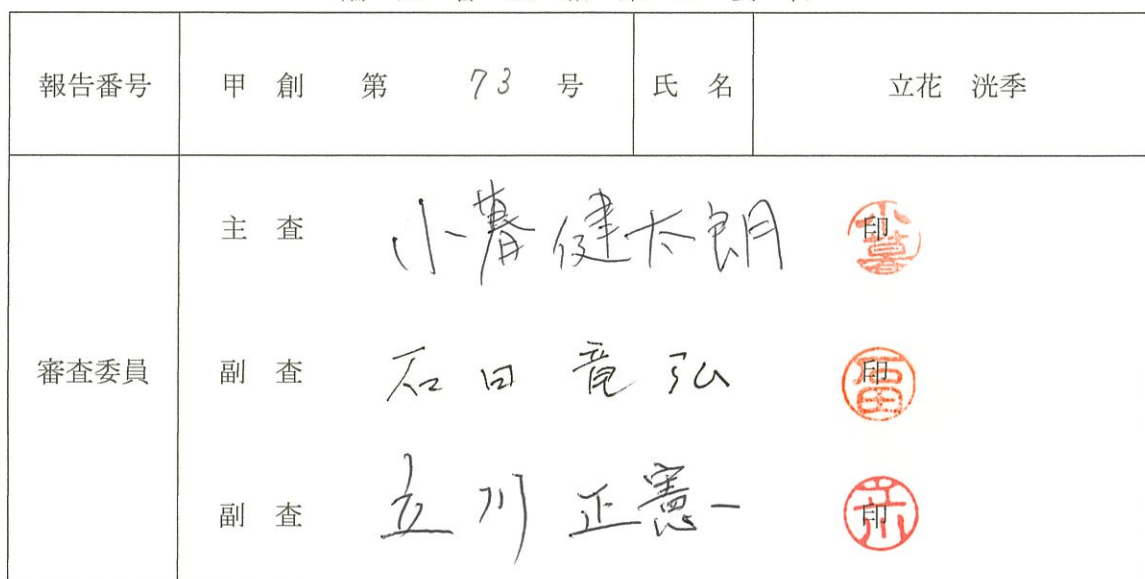 報告番号 甲 創 第 73 号 氏 名 立花 洸季
審査委員
主 査 小暮健太朗 印
副 査 石田竜弘 印
副 査 立川正憲 印